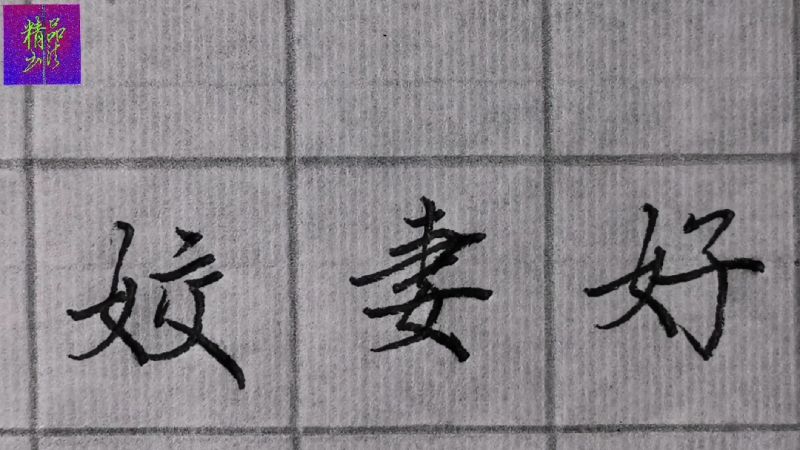 精品
书法
姣妻好